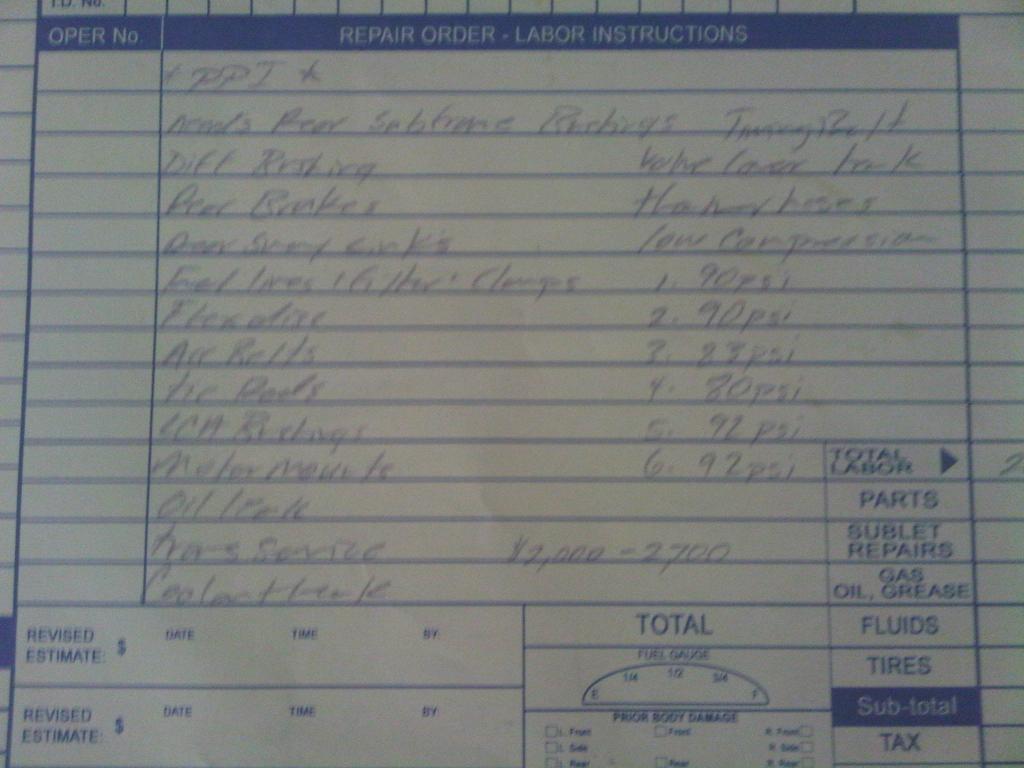 I.D. No.
OPER No. REPAIR ORDER - LABOR INSTRUCTIONS
* PPI *
Needs Rear Subframe Bushings Timing Belt
Diff Bushing Valve cover leak
Rear Brakes heater hoses
Rear Sway Links low Compression
Fuel lines / filter / Clamps 1. 90psi
Flex disc 2. 90psi
Acc Belts 3. 83psi
Tie Rods 4. 80psi
LCA Bushings 5. 92 psi
Motor Mounts 6. 92psi TOTAL LABOR 2
Oil leak PARTS
Trans Service $2,000 - 2700 SUBLET REPAIRS
Coolant leak GAS OIL, GREASE
REVISED ESTIMATE: $ DATE TIME BY: TOTAL FLUIDS
FUEL GAUGE TIRES
E 1/4 1/2 3/4 F
REVISED ESTIMATE: $ DATE TIME BY: PRIOR BODY DAMAGE Sub-total
L. Front Front R. Front TAX
L. Side R. Side
L. Rear Rear R. Rear